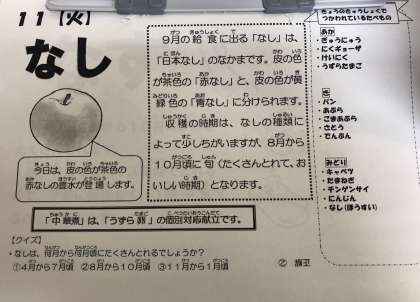 11【火】
なし
9月の給食に出る「なし」は、
「日本なし」のなかまです。皮の色
が茶色の「赤なし」と、皮の色が黄
緑色の「青なし」に分けられます。
収穫の時期は、なしの種類に
よって少しちがいますが、8月から
10月頃に旬(たくさんとれて、お
いしい時期)となります。
今日は、皮の色が茶色の
赤なしの豊水が登場します。
「中華煮」は、「うずら卵」の個別対応献立です。
【クイズ】
・なしは、何月から何月頃にたくさんとれるでしょうか?
①4月から7月頃 ②8月から10月頃 ③11月から1月頃
きょうのきゅうしょくで
つかわれているたべもの
あか
・ぎゅうにゅう
・にくギョーザ
・けいにく
・うずらたまご
・パン
・あぶら
・ごまあぶら
・さとう
・でんぷん
みどり
・キャベツ
・たまねぎ
・チンゲンサイ
・にんじん
・なし(ほうすい)